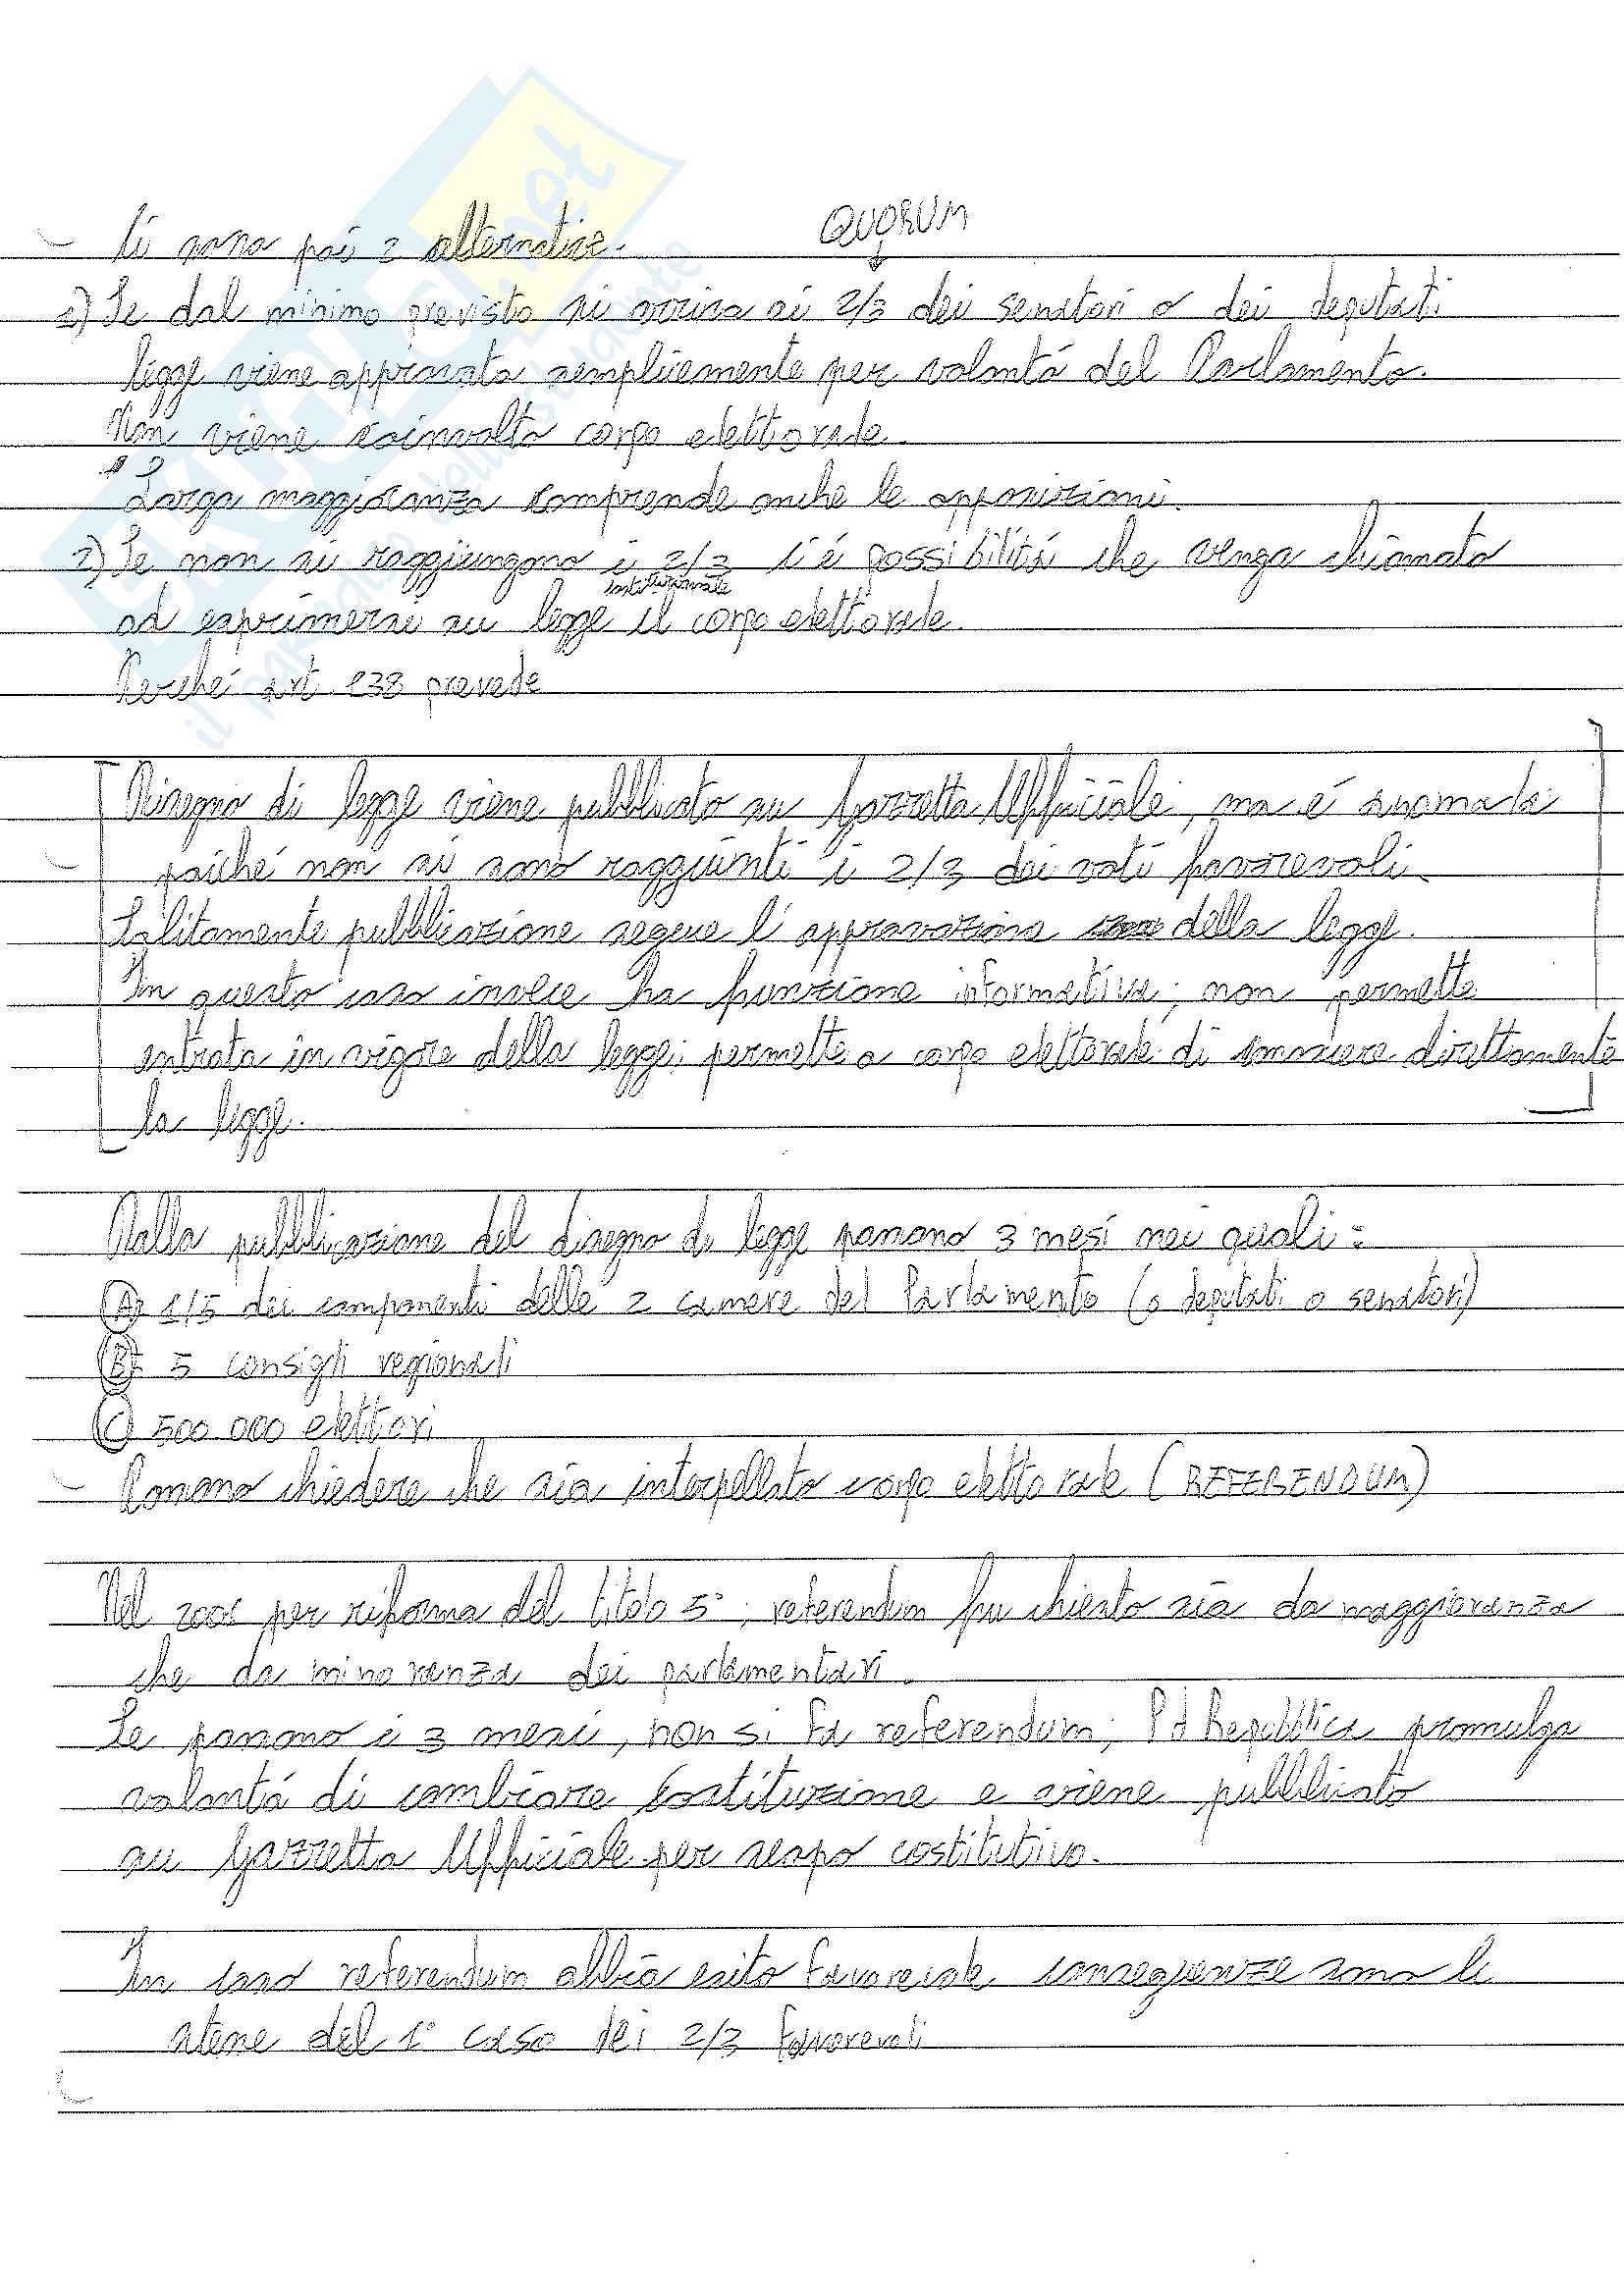 QUORUM
Ci sono poi 2 alternative.
1) Se dal minimo previsto si arriva ai 2/3 dei senatori o dei deputati
legge viene approvata semplicemente per volontá del Parlamento.
Non viene coinvolto corpo elettorale.
Larga maggioranza comprende anche le opposizioni.
2) Se non si raggiungono i 2/3 c'é possibilitá che venga chiamato
costituzionale
ad esprimersi su legge il corpo elettorale.
Perché art. 138 prevede
Disegno di legge viene pubblicato su Gazzetta Ufficiale, ma é anomala
poiché non si sono raggiunti i 2/3 dei voti favorevoli.
Solitamente pubblicazione segue l'approvazione della legge.
In questo caso invece ha funzione informativa; non permette
entrata in vigore della legge; permette a corpo elettorale di conoscere direttamente
la legge.
Dalla pubblicazione del disegno di legge passano 3 mesi nei quali:
A) 1/5 dei componenti delle 2 camere del Parlamento (o deputati o senatori)
B) 5 consigli regionali
C) 500.000 elettori
Possono chiedere che sia interpellato corpo elettorale (REFERENDUM)
Nel 2001 per riforma del titolo 5°, referendum fu chiesto sia da maggioranza
che da minoranza dei parlamentari.
Se passano i 3 mesi, non si fa referendum; P d Repubblica promulga
volontá di cambiare Costituzione e viene pubblicato
su Gazzetta Ufficiale per scopo costitutivo.
In caso referendum abbia esito favorevole conseguenze sono le
stesse del 1° caso dei 2/3 favorevoli
il portale dello studente